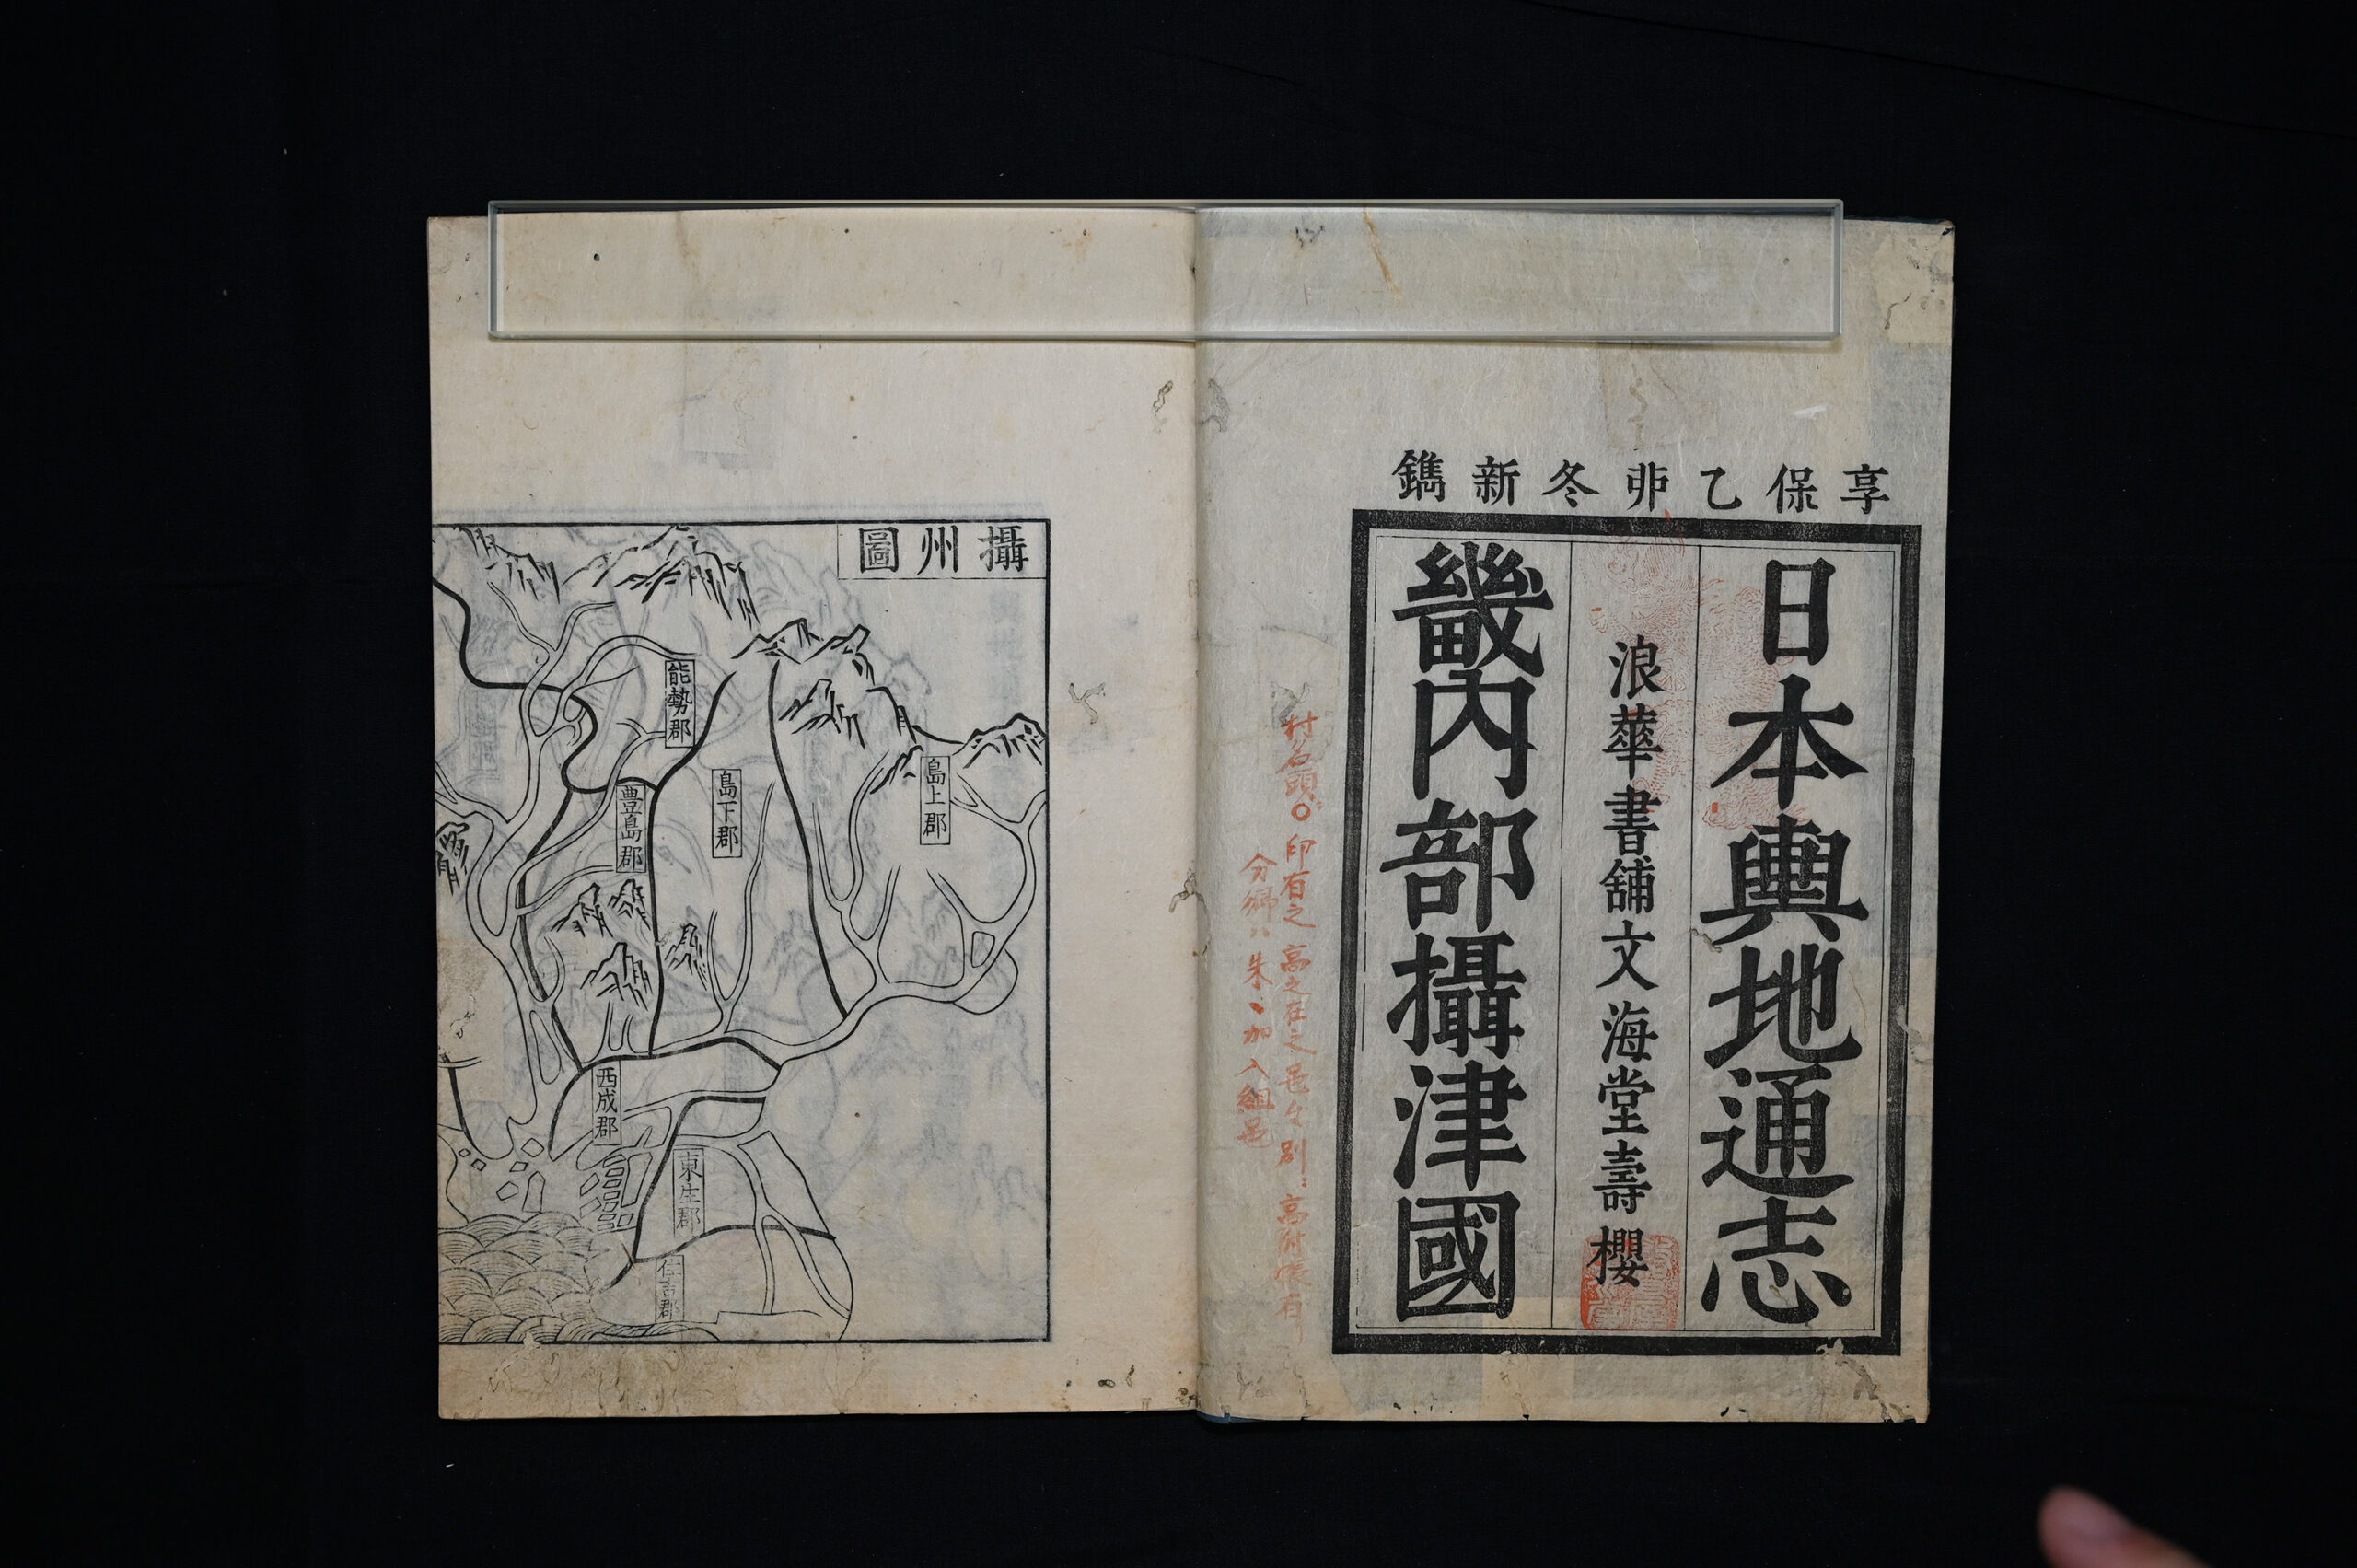 享保乙丣冬新鐫
日本輿地通志
浪華書舗文海堂壽櫻
畿内部攝津國
村名頭〇印有之高之在之邑々別高附帳有
分郷朱加入組邑
攝州圖
島上郡
島下郡
能勢郡
豊島郡
西成郡
東生郡
住吉郡